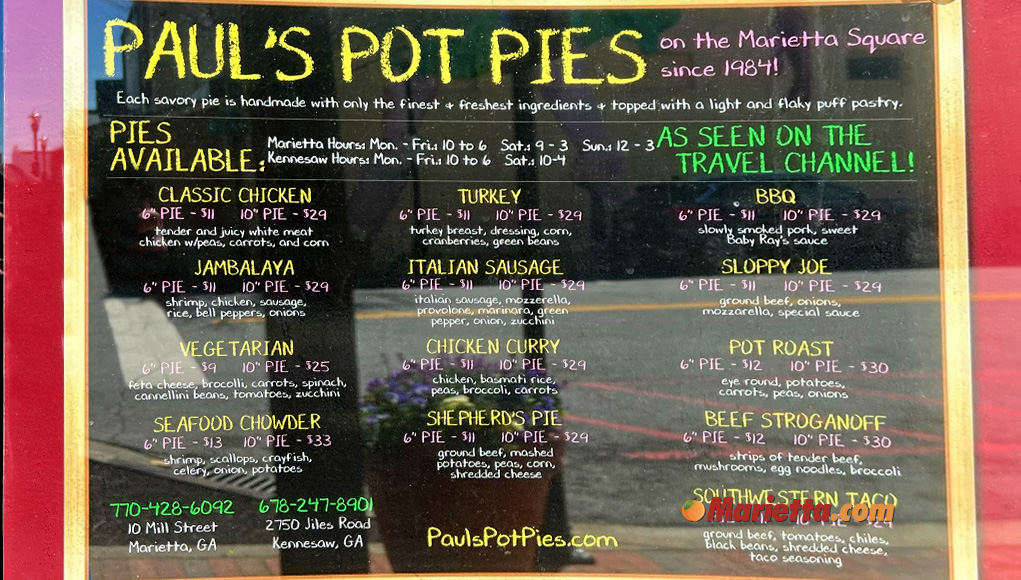 PAUL'S POT PIES on the Marietta Square
since 1984!
Each savory pie is handmade with only the finest + freshest ingredients + topped with a light and flaky puff pastry.
PIES
AVAILABLE:
Marietta Hours: Mon. - Fri.: 10 to 6 Sat.: 9 - 3 Sun.: 12 - 3
Kennesaw Hours: Mon. - Fri.: 10 to 6 Sat.: 10-4
AS SEEN ON THE
TRAVEL CHANNEL!
CLASSIC CHICKEN
6" PIE - $11 10" PIE - $29
tender and juicy white meat
chicken w/peas, carrots, and corn
TURKEY
6" PIE - $11 10" PIE - $29
turkey breast, dressing, corn,
cranberries, green beans
BBQ
6" PIE - $11 10" PIE - $29
slowly smoked pork, sweet
Baby Ray's sauce
JAMBALAYA
6" PIE - $11 10" PIE - $29
shrimp, chicken, sausage,
rice, bell peppers, onions
ITALIAN SAUSAGE
6" PIE - $11 10" PIE - $29
italian sausage, mozzerella,
provolone, marinara, green
pepper, onion, zucchini
SLOPPY JOE
6" PIE - $11 10" PIE - $29
ground beef, onions,
mozzarella, special sauce
VEGETARIAN
6" PIE - $9 10" PIE - $25
feta cheese, brocolli, carrots, spinach,
cannellini beans, tomatoes, zucchini
CHICKEN CURRY
6" PIE - $11 10" PIE - $29
chicken, basmati rice,
peas, broccoli, carrots
POT ROAST
6" PIE - $12 10" PIE - $30
eye round, potatoes,
carrots, peas, onions
SEAFOOD CHOWDER
6" PIE - $13 10" PIE - $33
shrimp, scallops, crayfish,
celery, onion, potatoes
SHEPHERD'S PIE
6" PIE - $11 10" PIE - $29
ground beef, mashed
potatoes, peas, corn,
shredded cheese
BEEF STROGANOFF
6" PIE - $12 10" PIE - $30
strips of tender beef,
mushrooms, egg noodles, broccoli
SOUTHWESTERN TACO
Marietta.com
ground beef, tomatoes, chiles,
black beans, shredded cheese,
taco seasoning
770-428-6092
10 Mill Street
Marietta, GA
678-247-8901
2750 Jiles Road
Kennesaw, GA
PaulsPotPies.com